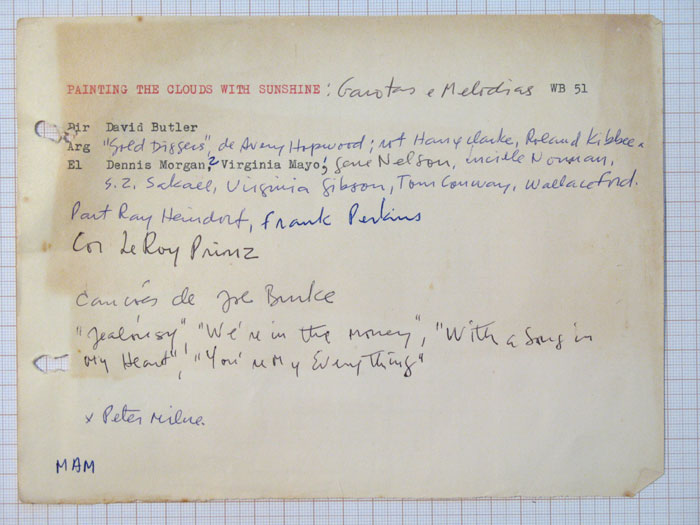 PAINTING THE CLOUDS WITH SUNSHINE : Garotas e Melodias WB 51
Dir David Butler
Arg "Gold Diggers", de Avery Hopwood; rot Harry Clarke, Roland Kibbee x
El Dennis Morgan, 2 Virginia Mayo, 1 Gene Nelson, Lucille Norman,
S. Z. Sakall, Virginia Gibson, Tom Conway, Wallace Ford.
Part Ray Heindorf, Frank Perkins
Cor LeRoy Prinz
Canções de Joe Burke
"Jealousy" "We're in the money", "With a Song in
My Heart", "You're My Everything"
x Peter Milne.
MAM